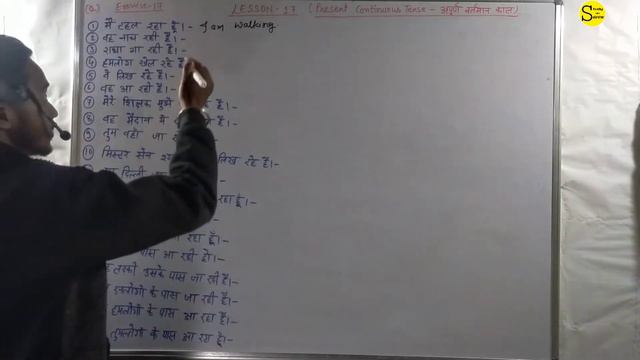 (Q.) Exercise-17 LESSON-17 (Present Continuous Tense - अपूर्ण वर्तमान काल)
① मैं टहल रहा हूँ।- I am walking
② वह नाच रही है।-
③ राधा गा रही है।-
④ हमलोग खेल रहे हैं
⑤ वे लिख रहे हैं।-
⑥ वह आ रही है।-
⑦ मेरे शिक्षक मुझे हैं।-
⑧ वह मैदान में है।-
⑨ तुम वहाँ जा
⑩ मिस्टर सेन लिख रहे हैं।-
दिल्ली
रहा हूँ।-
रहा हूँ।-
पास आ रही हो।-
लड़की उसके पास जा रही है।-
हमलोगों के पास जा रही है।-
हमलोगों के पास आ रहा है।-
तुमलोगों के पास आ रहा हूँ।-
Study Source